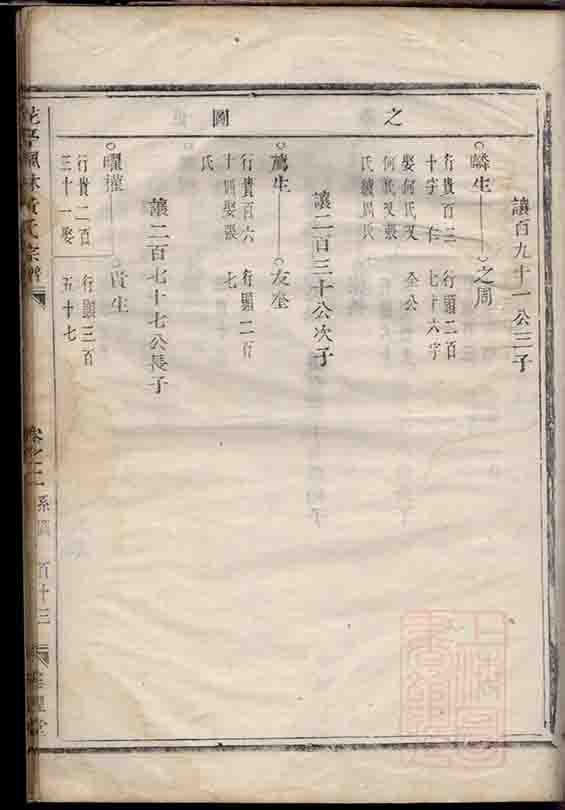 之
圖
讓百九十一公三子
○麟生
○之周
行貴百三
十字 仁
娶何氏又
何氏又張
氏續周氏
行顯二百
七十六字
全公
讓二百三十公次子
○萬生
○友奎
行貴百六
十四娶張
氏
行顯二百
七
讓二百七十七公長子
○曜權
○貴生
行貴二百
三十一娶
行顯三百
五十七
林黃氏宗譜
卷之二
系圖
百十三
堂
上海圖
書館藏